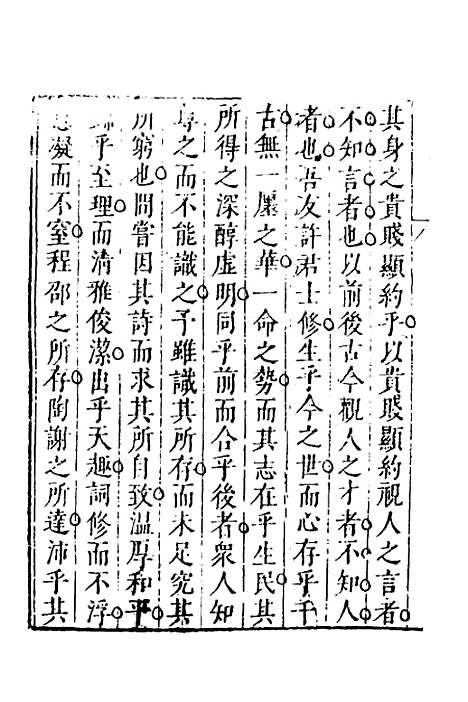 其身之貴賤顯約乎以貴賤顯約視人之言者
不知言者也以前後古今觀人之才者不知人
者也吾友許君士修生乎今之世而心存乎千
古無一廛之華一命之勢而其志在乎生民其
所得之深醇虛明同乎前而合乎後者衆人知
之而不能識之予雖識其所存而未足究其
所窮也間嘗因其詩而求其所自致溫厚和平
乎至理而清雅俊潔出乎天趣詞修而不浮
凝而不窒程邵之所存陶謝之所達沛乎其